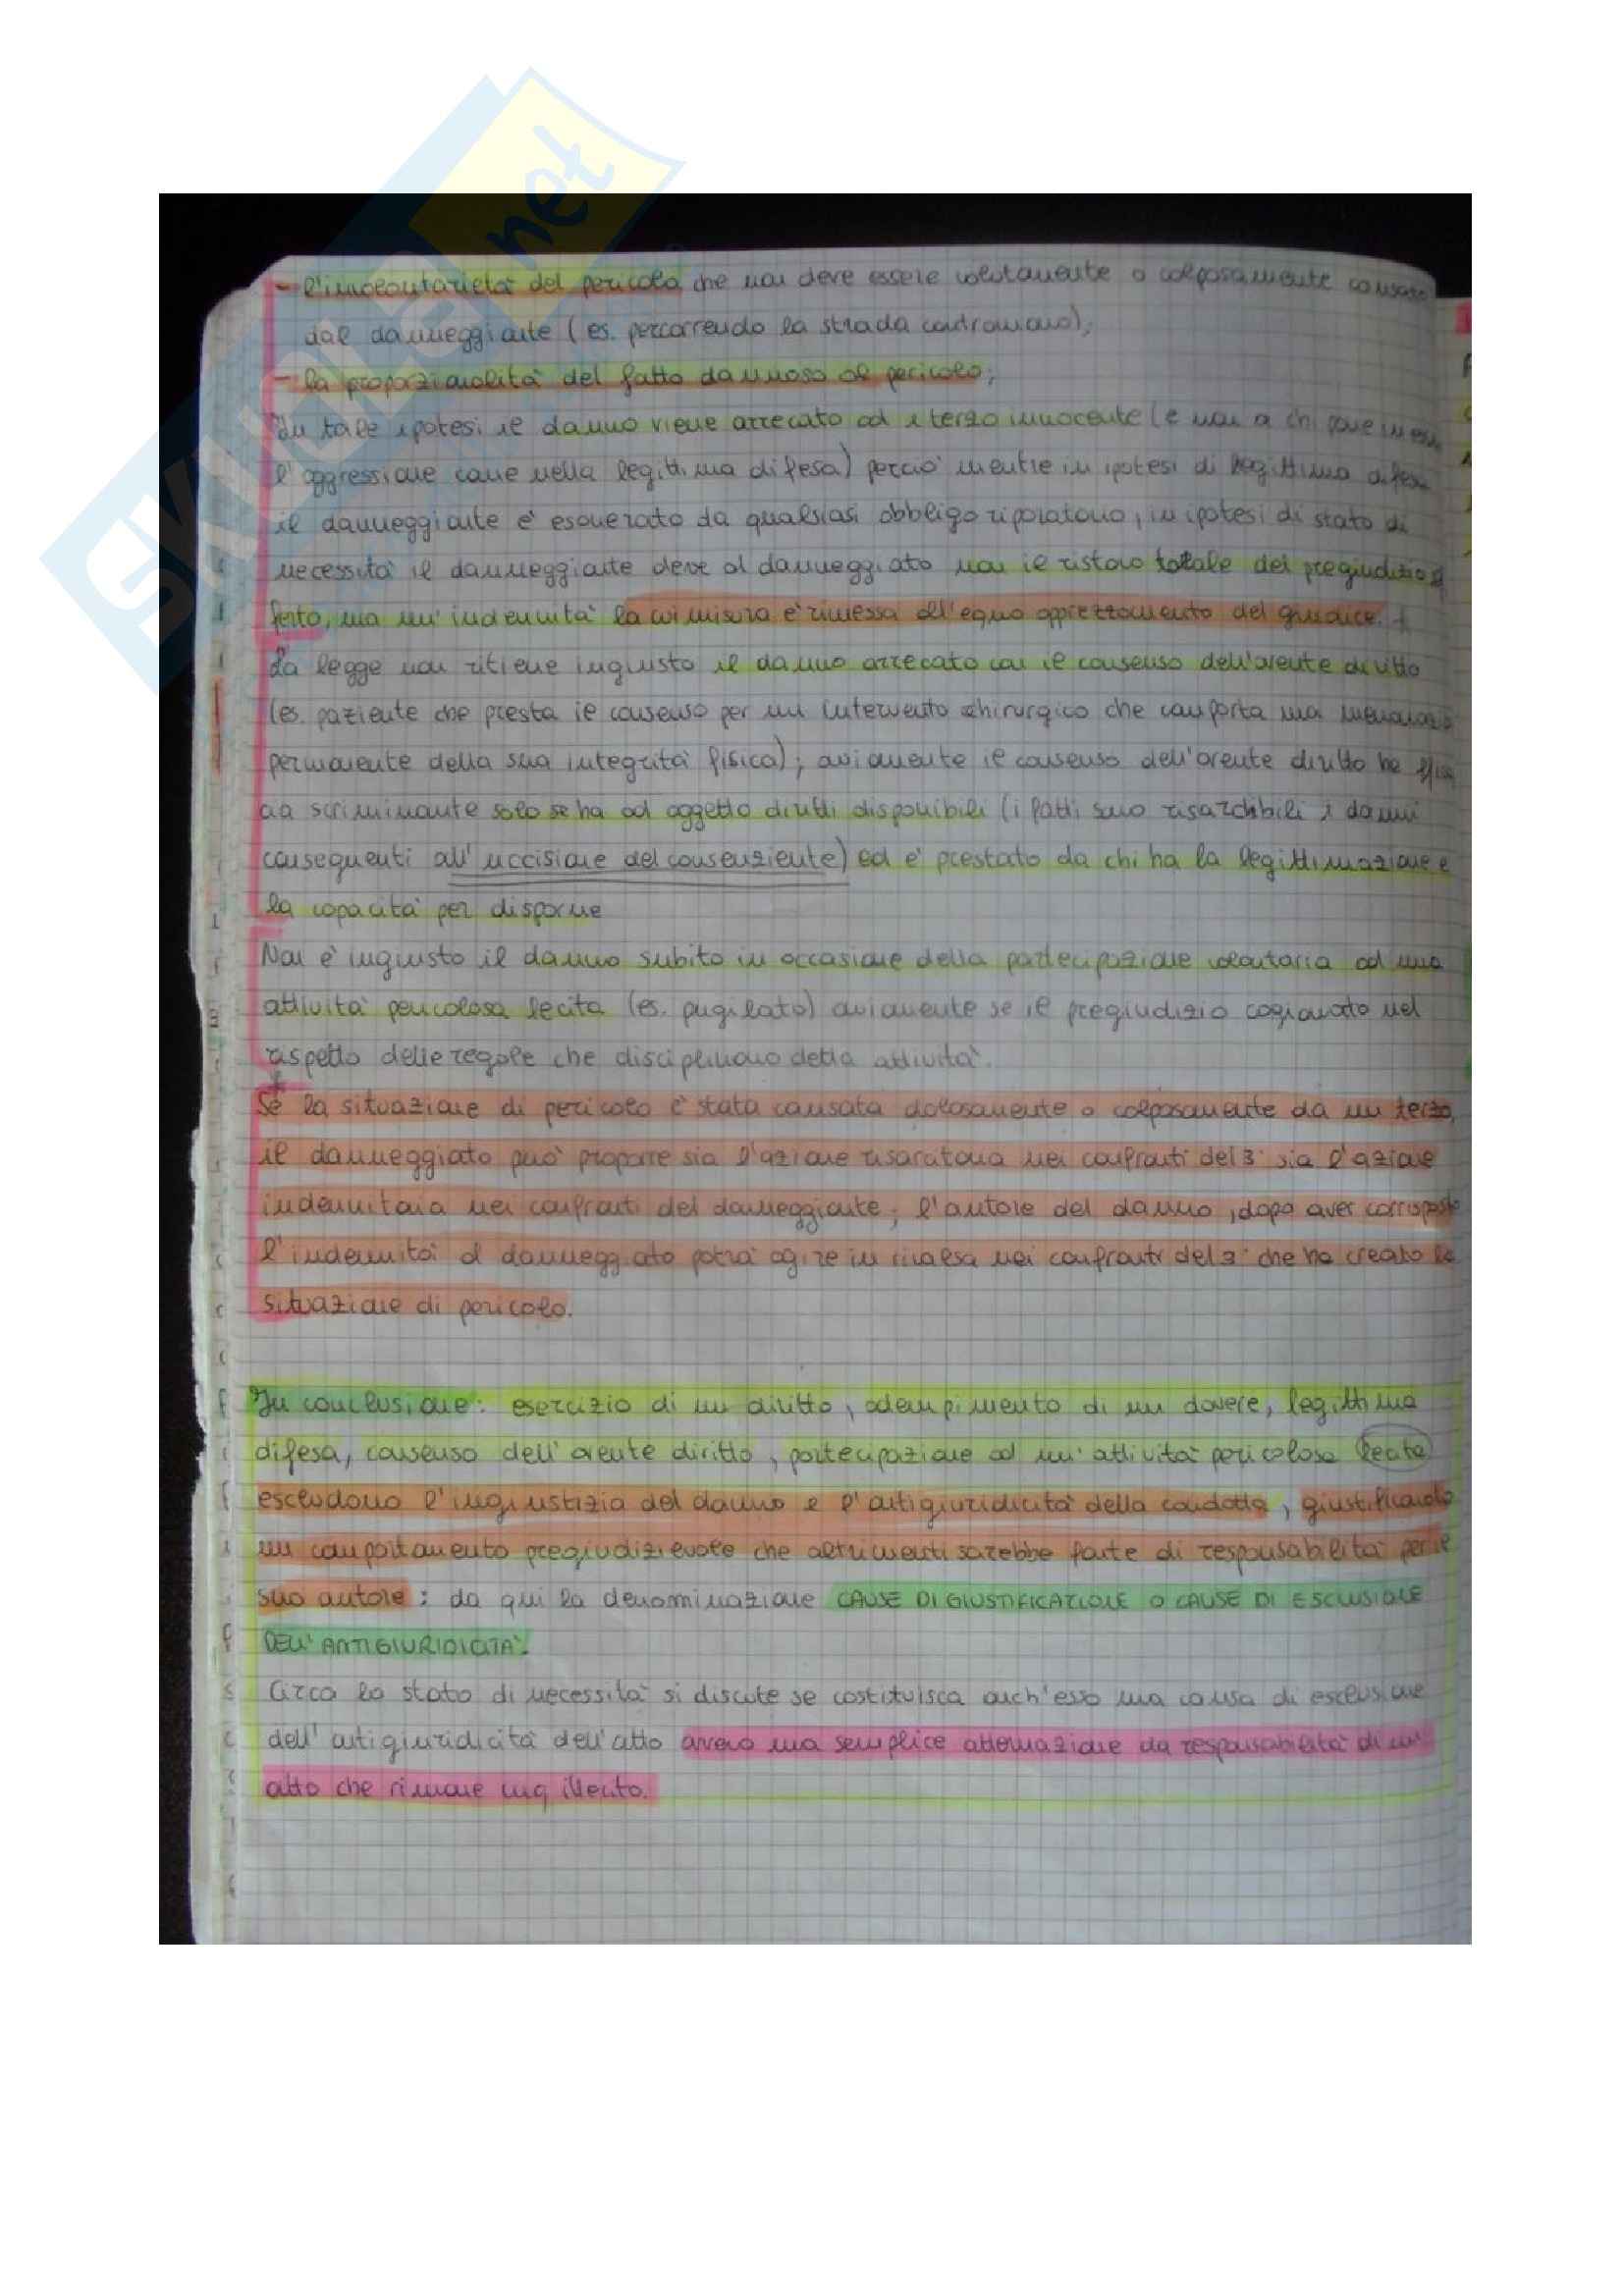 SKUOLA.net
- l'involontarietà del pericolo che non deve essere volontariamente o colposamente causato
dal danneggiante (es. percorrendo la strada contromano);
- la proporzionalità del fatto dannoso al pericolo;
In tale ipotesi il danno viene arrecato ad 1 terzo innocente (e non a chi pone in
l'aggressione come nella legittima difesa) perciò mentre in ipotesi di legittima difesa
il danneggiante è esonerato da qualsiasi obbligo riparatorio, in ipotesi di stato di
necessità il danneggiante deve al danneggiato non il ristoro totale del pregiudizio
ferto, ma un'indennità la cui misura è rimessa all'equo apprezzamento del giudice. +
La legge non ritiene ingiusto il danno arrecato con il consenso dell'avente diritto
(es. paziente che presta il consenso per un intervento chirurgico che comporta una menomazione
permanente della sua integrità fisica); ovviamente il consenso dell'avente diritto ha
cia scriminante solo se ha ad oggetto diritti disponibili (infatti sono risarcibili i danni
conseguenti all'uccisione del consenziente) ed è prestato da chi ha la legittimazione e
la capacità per disporne
Non è ingiusto il danno subito in occasione della partecipazione volontaria ad una
attività pericolosa lecita (es. pugilato) ovviamente se il pregiudizio cagionato nel
rispetto delle regole che disciplinano detta attività.
+
Se la situazione di pericolo è stata causata dolosamente o colposamente da un terzo,
il danneggiato può proporre sia l'azione risarcitoria nei confronti del 3° sia l'azione
indennitaria nei confronti del danneggiante; l'autore del danno, dopo aver corrisposto
l'indennità al danneggiato potrà agire in rivalsa nei confronti del 3° che ha creato la
situazione di pericolo.
In conclusione: esercizio di un diritto, adempimento di un dovere, legittima
difesa, consenso dell'avente diritto, partecipazione ad un'attività pericolosa lecita
escludono l'ingiustizia del danno e l'antigiuridicità della condotta, giustificando
un comportamento pregiudizievole che altrimenti sarebbe fonte di responsabilità per il
suo autore: da qui la denominazione CAUSE DI GIUSTIFICAZIONE O CAUSE DI ESCLUSIONE
DELL'ANTIGIURIDICITÀ.
Circa lo stato di necessità si discute se costituisca anch'esso una causa di esclusione
dell'antigiuridicità dell'atto ovvero una semplice attenuazione da responsabilità di un
atto che rimane illecito.